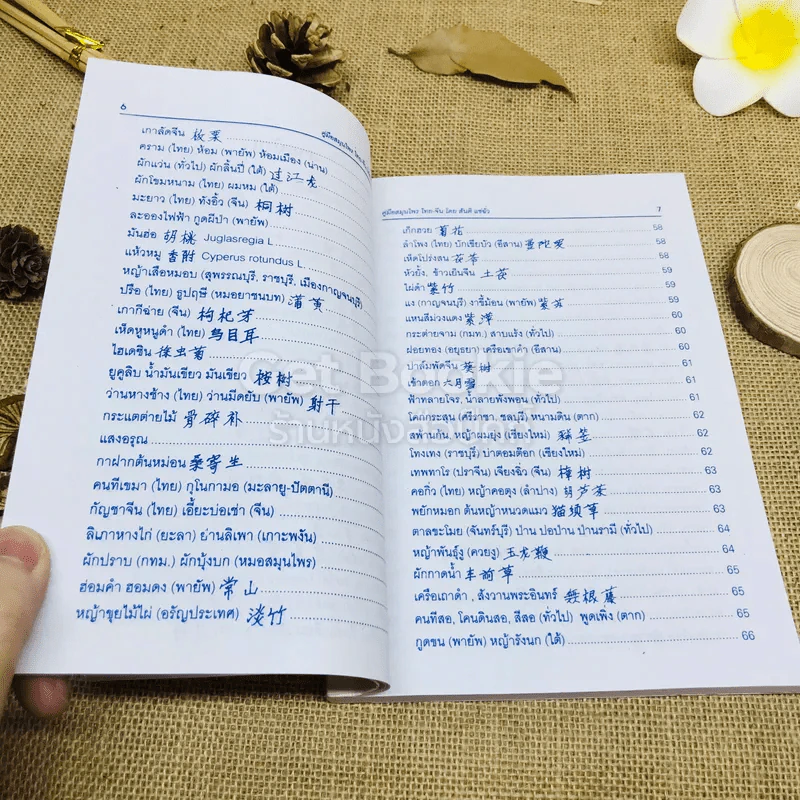 6
คู่มือสมุนไพร ไทย-
เกาลัดจีน 板栗
คราม (ไทย) ห้อม (พายัพ) ห้อมเมือง (น่าน)
ผักแว่น (ทั่วไป) ผักลิ้นปี่ (ใต้) 过江龙
ผักโขมหนาม (ไทย) ผมหม (ใต้)
มะยาว (ไทย) ทั่งอิ้ว (จีน) 桐树
ละอองไฟฟ้า กูดผีป่า (พายัพ)
มันฮ่อ 胡桃 Juglasregia L.
แห้วหมู 香附 Cyperus rotundus L.
หญ้าเสือหมอบ (สุพรรณบุรี, ราชบุรี, เมืองกาญจนบุรี)
ปรือ (ไทย) ธูปฤษี (หมอยาชนบท) 蒲黄
เกากีฉ่าย (จีน) 枸杞芽
เห็ดหูหนูดำ (ไทย) 乌目耳
ไฮเดซิน 除虫菊
ยูคูลิบ น้ำมันเขียว มันเขียว 桉树
ว่านหางช้าง (ไทย) ว่านมีดยับ (พายัพ) 射干
กระแตต่ายไม้ 骨碎补
แสงอรุณ
กาฝากต้นหม่อน 桑寄生
คนทีเขมา (ไทย) กุโนกามอ (มะลายู-ปัตตานี)
กัญชาจีน (ไทย) เอี้ยะบ่อเช่า (จีน)
ลิเภาหางไก่ (ยะลา) ย่านลิเพา (เกาะพงัน)
ผักปราบ (กทม.) ผักบุ้งบก (หมอสมุนไพร)
ฮ่อมคำ ฮอมดง (พายัพ) 常山
หญ้าขุยไม้ไผ่ (อรัญประเทศ) 淡竹
คู่มือสมุนไพร ไทย-จีน โดย สันติ แซ่ฉั่ว 7
เก๊กฮวย 菊花 58
ลำโพง (ไทย) บักเขียบัว (อีสาน) 58
เห็ดโปร่งสน 茯苓 58
หัวยั้ง, ข้าวเย็นจีน 土茯 59
ไผ่ดำ 紫竹 59
แง (กาญจนบุรี) งาขี้ม้อน (พายัพ) 紫苏 59
แหนสีม่วงแดง 紫萍 60
กระต่ายจาม (กทมท.) สาบแร้ง (ทั่วไป) 60
ฝอยทอง (อยุธยา) เครือเขาคำ (อีสาน) 60
ปาล์มพัดจีน 葵树 61
เข้าดอก 六月雪 61
ฟ้าทลายโจร, น้ำลายพังพอน (ทั่วไป) 61
โคกกระสุน (ศรีราชา, ชลบุรี) หนามดิน (ตาก) 62
สพ้านก้น, หญ้าผมยุ่ง (เชียงใหม่) 62
โทงเทง (ราชบุรี) บ่าตอมต๊อก (เชียงใหม่) 62
เทพทาโร (ปราจีน) เจียงจิ้ว (จีน) 樟树 63
คอกิ่ว (ไทย) หญ้าคอตุง (ลำปาง) 葫芦茶 63
พยักหมอก ต้นหญ้าหนวดแมว 猫须草 63
ตาลขะโมย (จันทร์บุรี) ป่าน ปอป่าน ป่านรามี (ทั่วไป) 64
หญ้าพันธุ์งู (ควยงู) 玉龙鞭 64
ผักกาดน้ำ 车前草 65
เครือเถาดำ , สังวานพระอินทร์ 无根藤 65
คนทีสอ, โคนดินสอ, สีสอ (ทั่วไป) พูดเพิ่ง (ตาก) 65
กูดชน (พายัพ) หญ้ารังนก (ใต้) 66
Get Bookie
ร้านหนังสือมือ